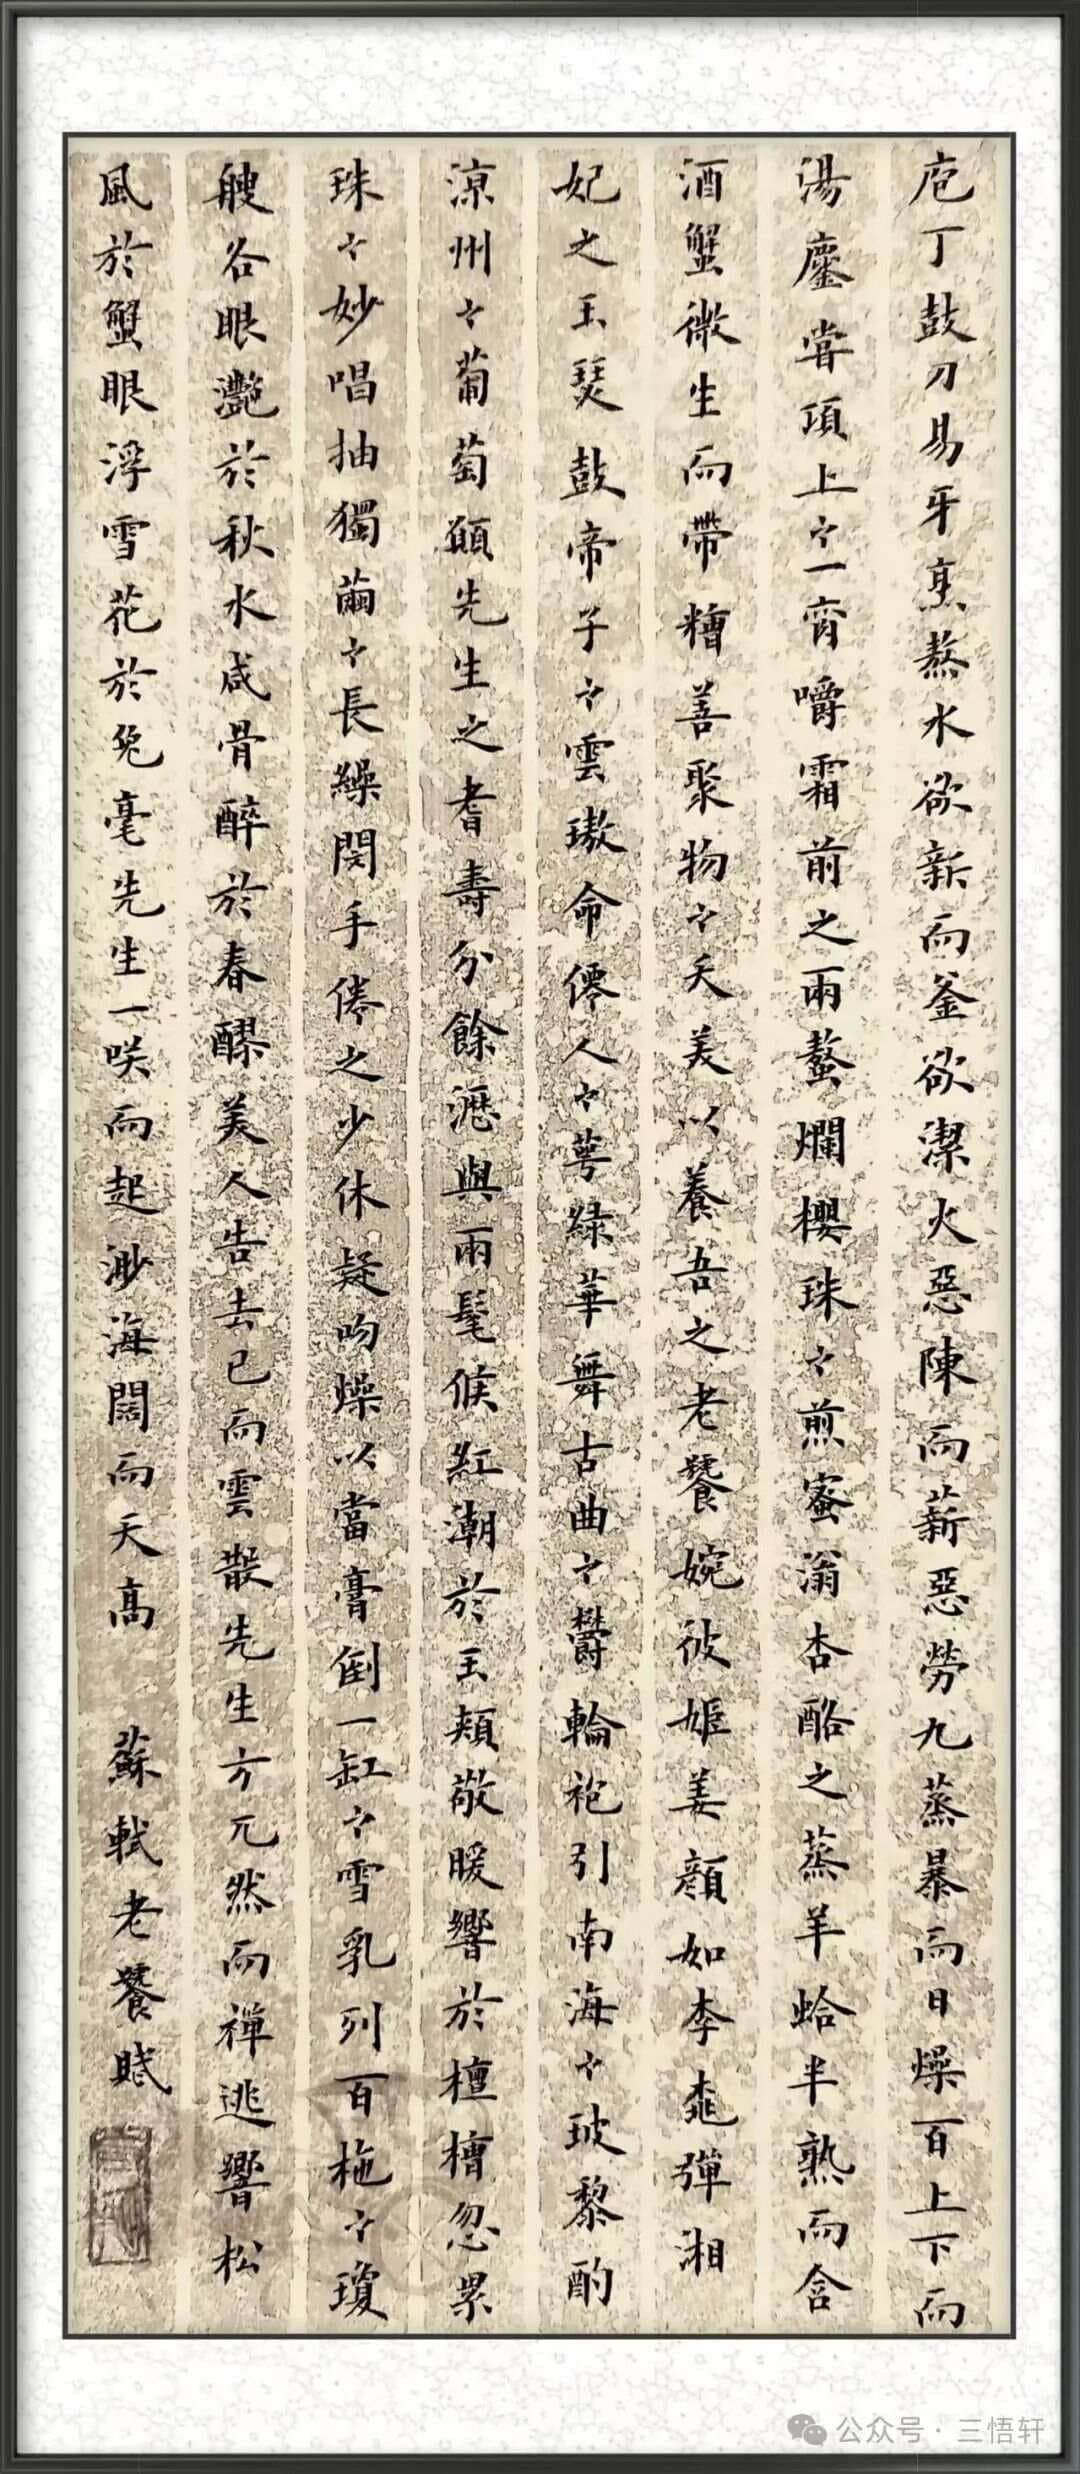 庖丁鼓刀易牙烹熬水欲新而釜欲潔火惡陳而薪惡勞九蒸暴而日燥百上下而
湯鏖嘗項上之一脔嚼霜前之兩螯爛櫻珠之煎蜜滃杏酪之蒸羊蛤半熟而含
酒蟹微生而帶糟善聚物之夭美以養吾之老饕婉彼姬姜顏如李桃彈湘
妃之玉瑟鼓帝子之雲璈命僊人之萼綠華舞古曲之鬱輪袍引南海之玻黎酌
涼州之葡萄願先生之耆壽分餘瀝與兩髦候紅潮於玉頰敬暖響於檀檜忽累
珠之妙唱抽獨繭之長繰閔手倦之少休疑吻燥以當膏倒一缸之雪乳列百柂之瓊
艘各眼灩於秋水咸骨醉於春醪美人告去已而雲散先生方兀然而禪逃響松
風於蟹眼浮雪花於兔毫先生一咲而起渺海闊而天高 蘇軾老饕賦
公众号·三悟轩